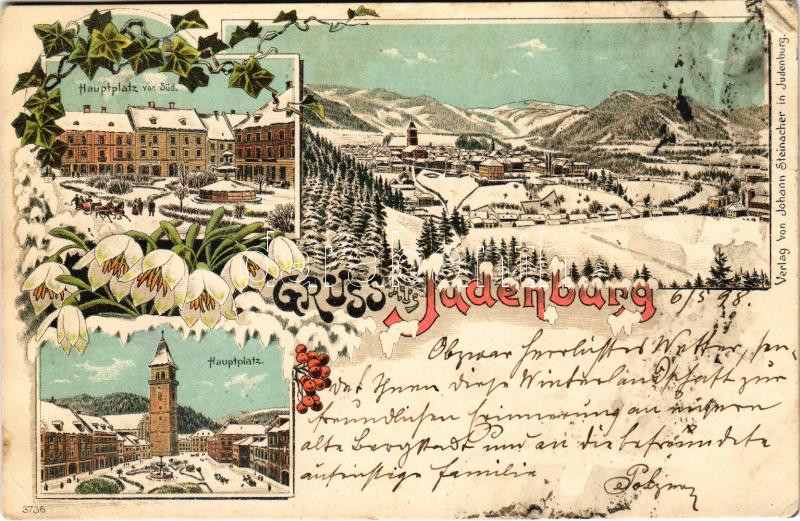 Hauptplatz von Süd.
Verlag von Johann Steinacher in Judenburg.
GRUSS aus Judenburg
6/5 98.
Hauptplatz.
Obzwar herrlichstes Wetter, sen-
det Ihnen diese Winterlandschaft zur
freundlichen Erinnerung an unsern
alte Bergstadt und an die befreundete
aufrichtige Familie
3736